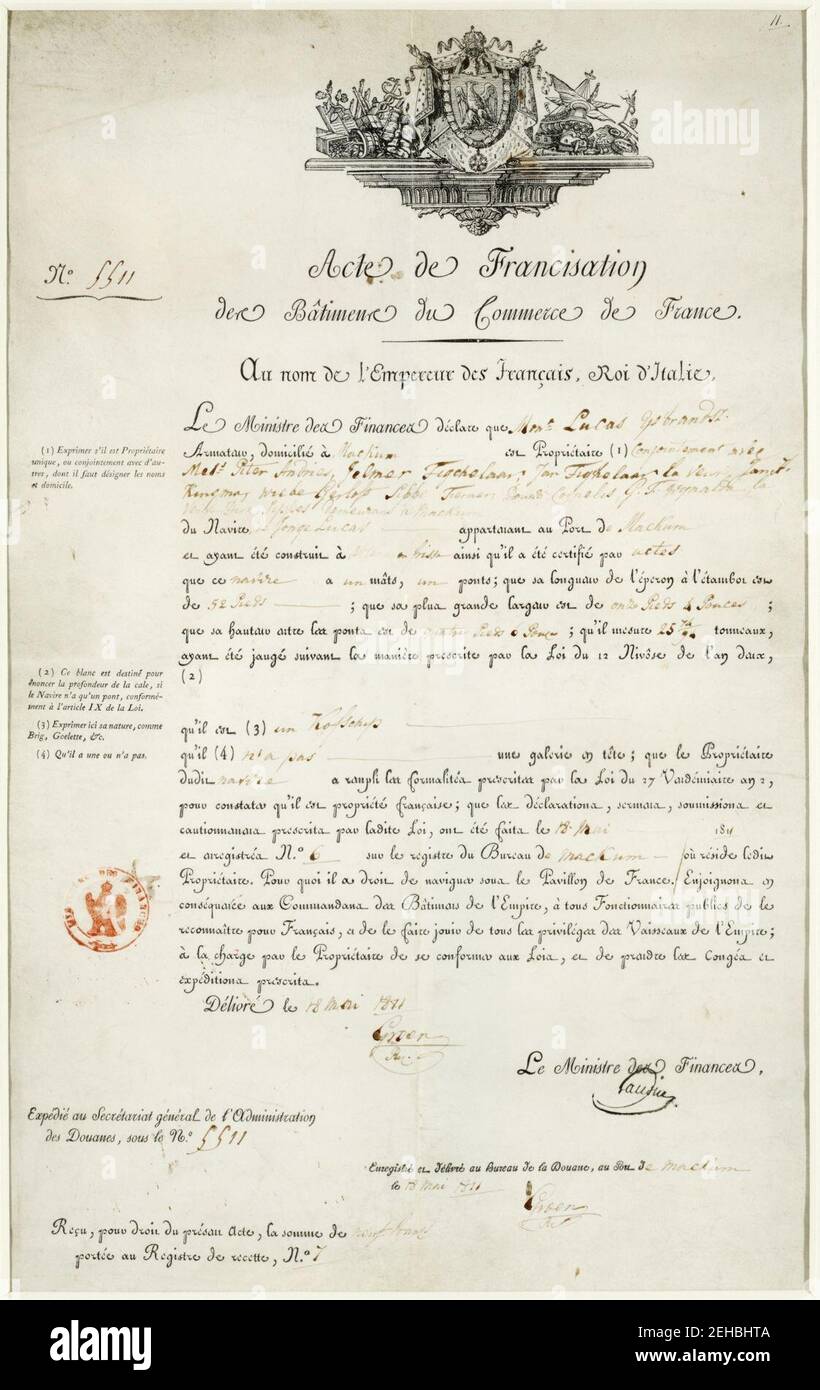 11.
N.º 5511
Acte de Francisation
des Bâtimens du Commerce de France.
Au nom de l'Empereur des Français, Roi d'Italie,
Le Ministre des Finances déclare que Mons. Lucas Ysbrandsz
Armateur, domicilié à Mackum est Propriétaire (1) Conjointement avec
Pieter Andries, Jelmer Tichelaar, Jan Tichelaar, la Veuve
Kingma, Wiebe Sibbe Cornelis
à Mackum
du Navire Jonge Lucas appartenant au Port de Mackum
et ayant été construit à ainsi qu'il a été certifié par actes
que ce navire a un mâts, un ponts; que sa longueur de l'éperon à l'étambot est
de 52 Pieds ; que sa plus grande largeur est de onze Pieds 4 Pouces ;
que sa hauteur entre les ponts est de quatre Pieds 6 Pouces ; qu'il mesure 25 tonneaux,
ayant été jaugé suivant la manière prescrite par la Loi du 12 Nivôse de l'an deux,
(2)
qu'il est (3) un Kofschip
qu'il (4) n'a pas une galerie en tête ; que le Propriétaire
dudit navire a rempli les formalités prescrites par la Loi du 27 Vendémiaire an 2,
pour constater qu'il est propriété française ; que les déclarations, sermens, soumissions et
cautionnemens prescrits par ladite Loi, ont été faits le 18 Mai 1811
et enregistrés N.º 6 sur le registre du Bureau de Mackum où réside ledit
Propriétaire. Pour quoi il a droit de naviguer sous le Pavillon de France. Enjoignons en
conséquence aux Commandans des Bâtimens de l'Empire, à tous Fonctionnaires publics de le
reconnaître pour Français, et de le faire jouir de tous les privilèges des Vaisseaux de l'Empire ;
à la charge par le Propriétaire de se conformer aux Lois, et de prendre les Congés et
expéditions prescrits.
Délivré le 18 Mai 1811
Groen
Le Ministre des Finances,
Gaudin
(1) Exprimer s'il est Propriétaire
unique, ou conjointement avec d'au-
tres, dont il faut désigner les noms
et domicile.
(2) Ce blanc est destiné pour
énoncer la profondeur de la cale, si
le Navire n'a qu'un pont, conformé-
ment à l'article IX de la Loi.
(3) Exprimer ici sa nature, comme
Brig, Goelette, &c.
(4) Qu'il a une ou n'a pas.
DES FINANCES
Expédié au Secrétariat général de l'Administration
des Douanes, sous le N.º 5511
Enregistré et délivré au Bureau de la Douane, au Port de Mackum
le 18 Mai 1811
Groen
Reçu, pour droit du présent Acte, la somme de neuf francs
portée au Registre de recette, N.º 7
alamy
alamy
alamy
alamy
Image ID: 2EHBHTA
www.alamy.com